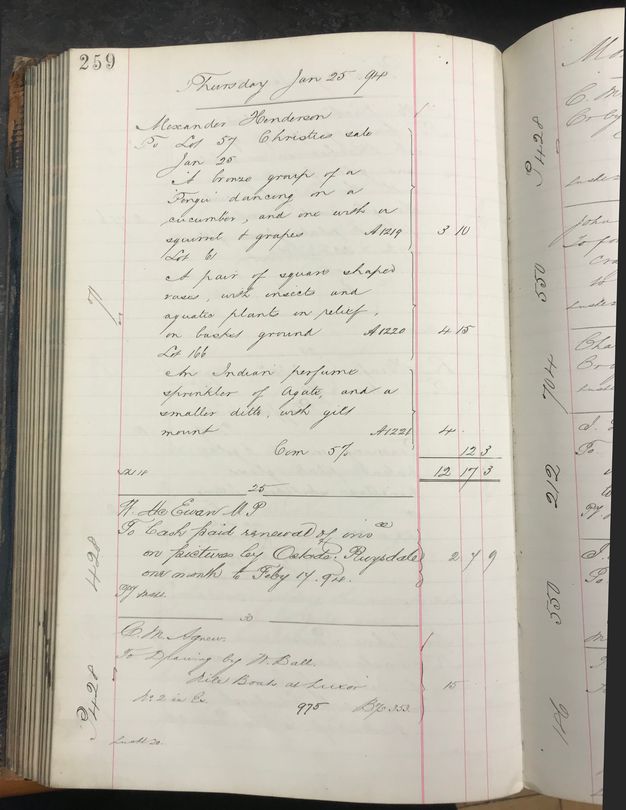 259
Thursday Jan 25 94
Alexander Henderson
To Lot 57 Christies sale
Jan 25
A bronze group of a
"Forgu" dancing on a
cucumber, and one with a
squirrel & grapes A1219 3 10
Lot 61
A pair of square shaped
vases, with insects and
aquatic plants in relief,
on basket ground A1220 4 15
Lot 166
An Indian perfume
sprinkler of Agate, and a
smaller ditto, with gilt
mount A1221 4
71
Com 5% 12 3
12 17 3
25
W. McEwan M.P
To Cash paid renewal of insce
on pictures by Ostade, Ruysdael
one month to Feby 17. 94. 2 7 9
428
C. M. Agnew.
To Drawing by W. Ball.
Nile Boats at Luxor 15
No 2 in Ex. 975 B/o 353.
428
428
550
704
212
550
146
John
To
Cha
J.
To